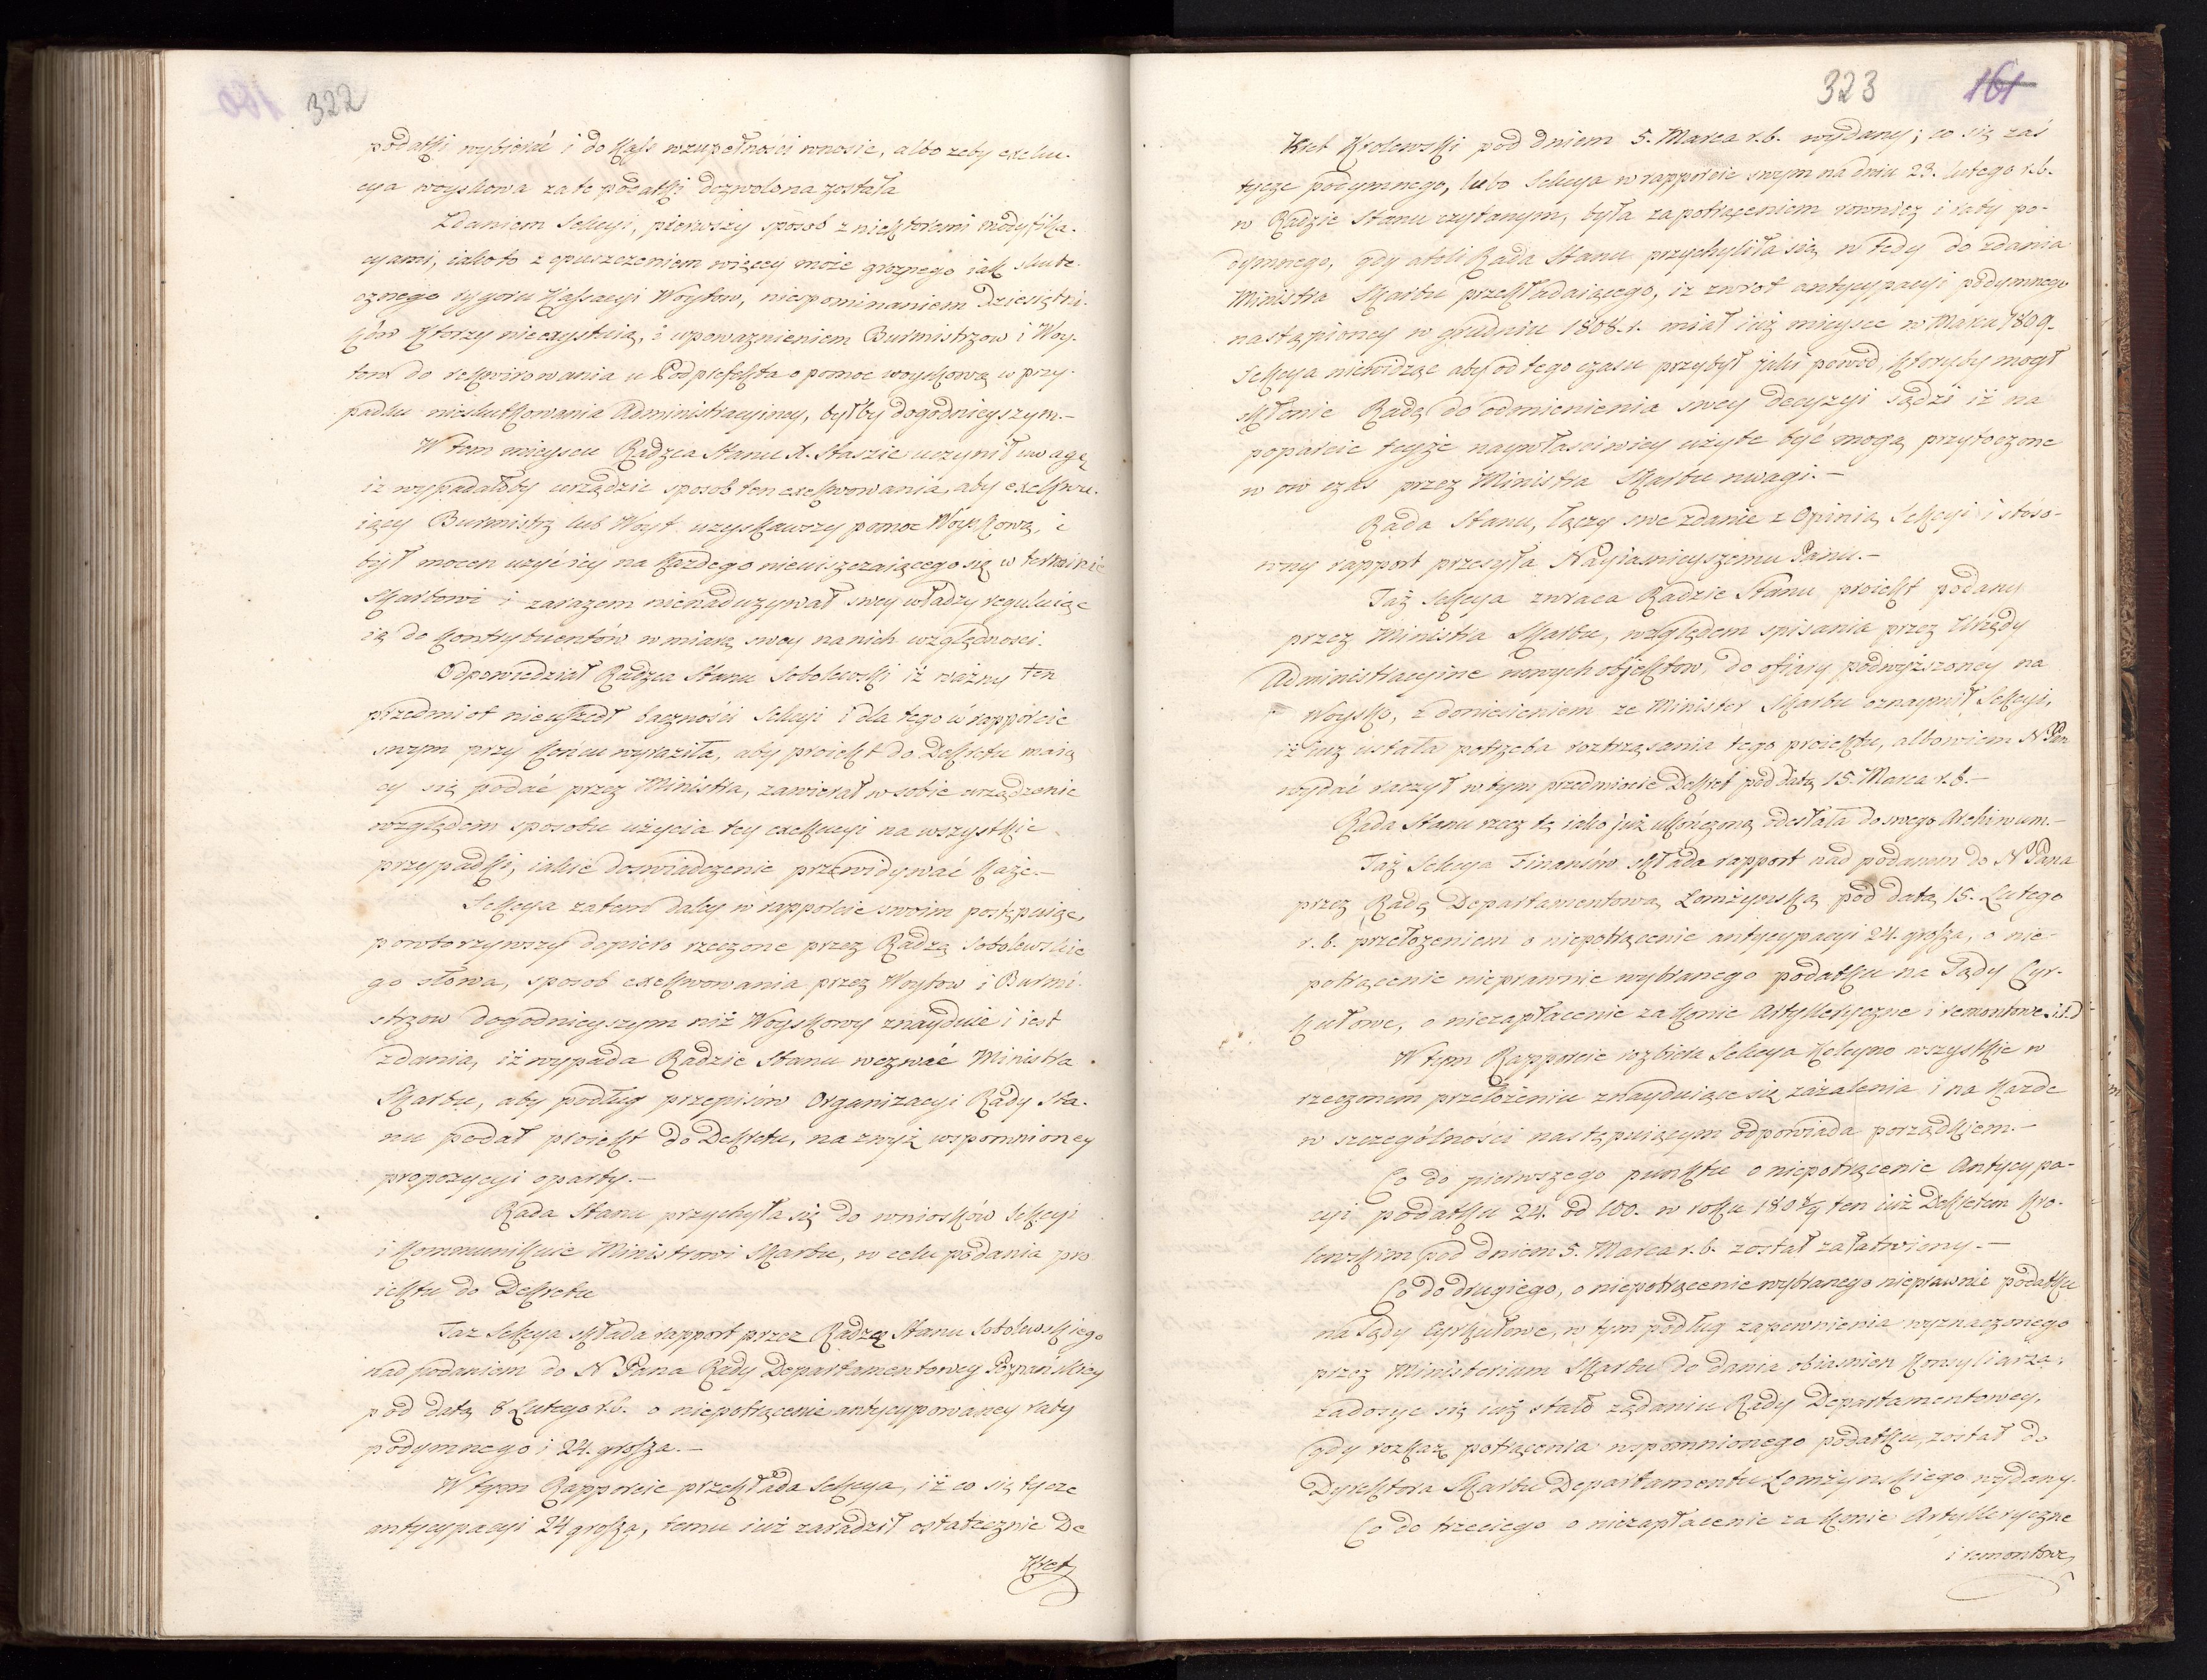 322
podatki wybierać i do Kass wzupełności wnosić, albo żeby exeku-
cya woyskowa za te podatki dozwolona została
Zdaniem Sekcyi, pierwszy sposob z niektoremi modyfika-
cyami, iako to z opuszczeniem więcey może groznego iak skute-
cznego rygoru Kassacyi Woytow, niespominaniem Dziesiętni-
ków ktorzy nieexystuią, i upoważnieniem Burmistrzow i Woy-
tow do rekwirowania u Podprefekta o pomoc woyskową w przy-
padku nieskutkowania Administracyiney, byłby dogodnieyszym.-
W tem mieyscu Radzca Stanu X. Staszic uczynił uwagę
iz wypadałoby urządzic sposob ten exekwowania, aby exekwu-
iący Burmistrz lub Woyt uzyskawszy pomoc Woyskową, i
był mocen użyć iey na każdego nieuiszczaiącego się w terminie
Skarbowi i zarazem nienadużywał swey władzy reguluiąc
ią do kontrybuentów w miarę swey na nich względności.
Odpowiedział Radzca Stanu Sobolewski iż ważny ten
przedmiot nieuszedł baczności Sekcyi i dla tego w rapporcie
swym przy końcu wyraziła, aby proiekt do Dekretu maią-
cy się podać przez Ministra, zawierał w sobie urządzenie
względem sposobu użycia tey exekucyi na wszystkie
przypadki, iakie doswiadczenie przewidywać każe.-
Sekcya zatem daley w rapporcie swoim postępuiąc,
powtorzywszy dopiero rzeczone przez Radzcę Sobolewskie-
go słowa, sposob exekwowania przez Woytow i Burmi-
strzow dogodnieyszym niż Woyskowy znayduie i iest
zdania, iż wypada Radzie Stanu wezwać Ministra
Skarbu, aby podług przepisów Organizacyi Rady Sta-
nu podał proiekt do Dekretu, na zwyż wspomnioney
propozycyi oparty.-
Rada Stanu przychyla się do wniosków Sekcyi
i kommunikuie Ministrowi Skarbu, w celu podania pro
iektu do Dekretu
Taz Sekcya składa rapport przez Radzcę Stanu Sobolewskiego
nad podaniem do N Pana Rady Departamentowey Poznańskiey
pod datą 8 Lutego r.b. o niepotrącenie antycypowaney raty
podymnego i 24. grosza.-
W tym Rapporcie przekłada Sekcya, iż co się tycze
antycypacyi 24 grosza, temu iuż zaradził ostatecznie De
kret
323 161
kret Krolewski pod dniem 5. Marca r.b. wydany; co się zaś
tycze podymnego, lubo Sekcya w rapporcie swym na dniu 23. Lutego r.b.
w Radzie Stanu czytanym, była za potrąceniem rownież i raty po-
dymnego, gdy atoli Rada Stanu przychyliła się w tedy do zdania
Ministra Skarbu przekładaiącego, iż zwrot antycypacyi podymnego
nastąpioney w grudniu 1808. r. miał iuż mieysce w Marcu 1809.
Sekcya niewidząc aby od tego czasu przybył jaki powod, ktoryby mogł
skłonic Radę do odmienienia swey decyzyi sądzi iż na
poparcie teyże naywłasciwiey użyte być mogą przytoczone
w ow czas przez Ministra Skarbu uwagi.-
Rada Stanu, łączy swe zdanie z Opinią Sekcyi i stoso-
wny rapport przesyła Nayiasnieyszemu Panu.-
Taż Sekcya zwraca Radzie Stanu proiekt podany
przez Ministra Skarbu, względem spisania przez Urzędy
Administracyine nowych objektow, do ofiary podwyższoney na
Woysko, z doniesieniem ze Minister Skarbu oznaymił Sekcyi,
iż iuż ustała potrzeba roztrząsania tego proiektu, albowiem N Pan
wydać raczył w tym przedmiocie Dekret pod datą 15. Marca r.b.-
Rada Stanu rzecz tę iako już ukończoną odesłała do swego Archiwum.-
Taż Sekcya Finansów składa rapport nad podanem do N Pana
przez Radę Departamentową Łomżynską pod datą 15. Lutego
r.b. przełożeniem o niepotrącenie antycypacyi 24. grosza, o nie-
potrącenie nieprawnie wybranego podatku na Sądy Cyr-
kułowe, o niezapłacenie za konie Artylleryczne i remontowe. i.t.d.
W tym Rapporcie rozbiera Sekcya koleyno wszystkie w
rzeczonem przełożeniu znayduiące się zażalenia i na każde
w szczególności następuiącym odpowiada porządkiem.-
Co do pierwszego punktu o niepotrącenie Antycypa-
cyi podatku 24. od 100. w roku 1808/9 ten iuż Dekretem Kro-
lewskim pod dniem 5. Marca r.b. został załatwiony.-
Co do drugiego, o niepotrącenie wybranego nieprawnie podatku
na Sądy Cyrkułowe, w tym podług zapewnienia wyznaczonego
przez Ministerium Skarbu do dania obiasnien Konsyliarza,
zadosyc się iuż stało żądaniu Rady Departamentowey,
gdy rozkaz potrącenia wspomnionego podatku, został do
Dyrektora Skarbu Departamentu Łomżynskiego wydany.
Co do trzeciego o niezapłacenie za konie Artylleryczne
i remontowe